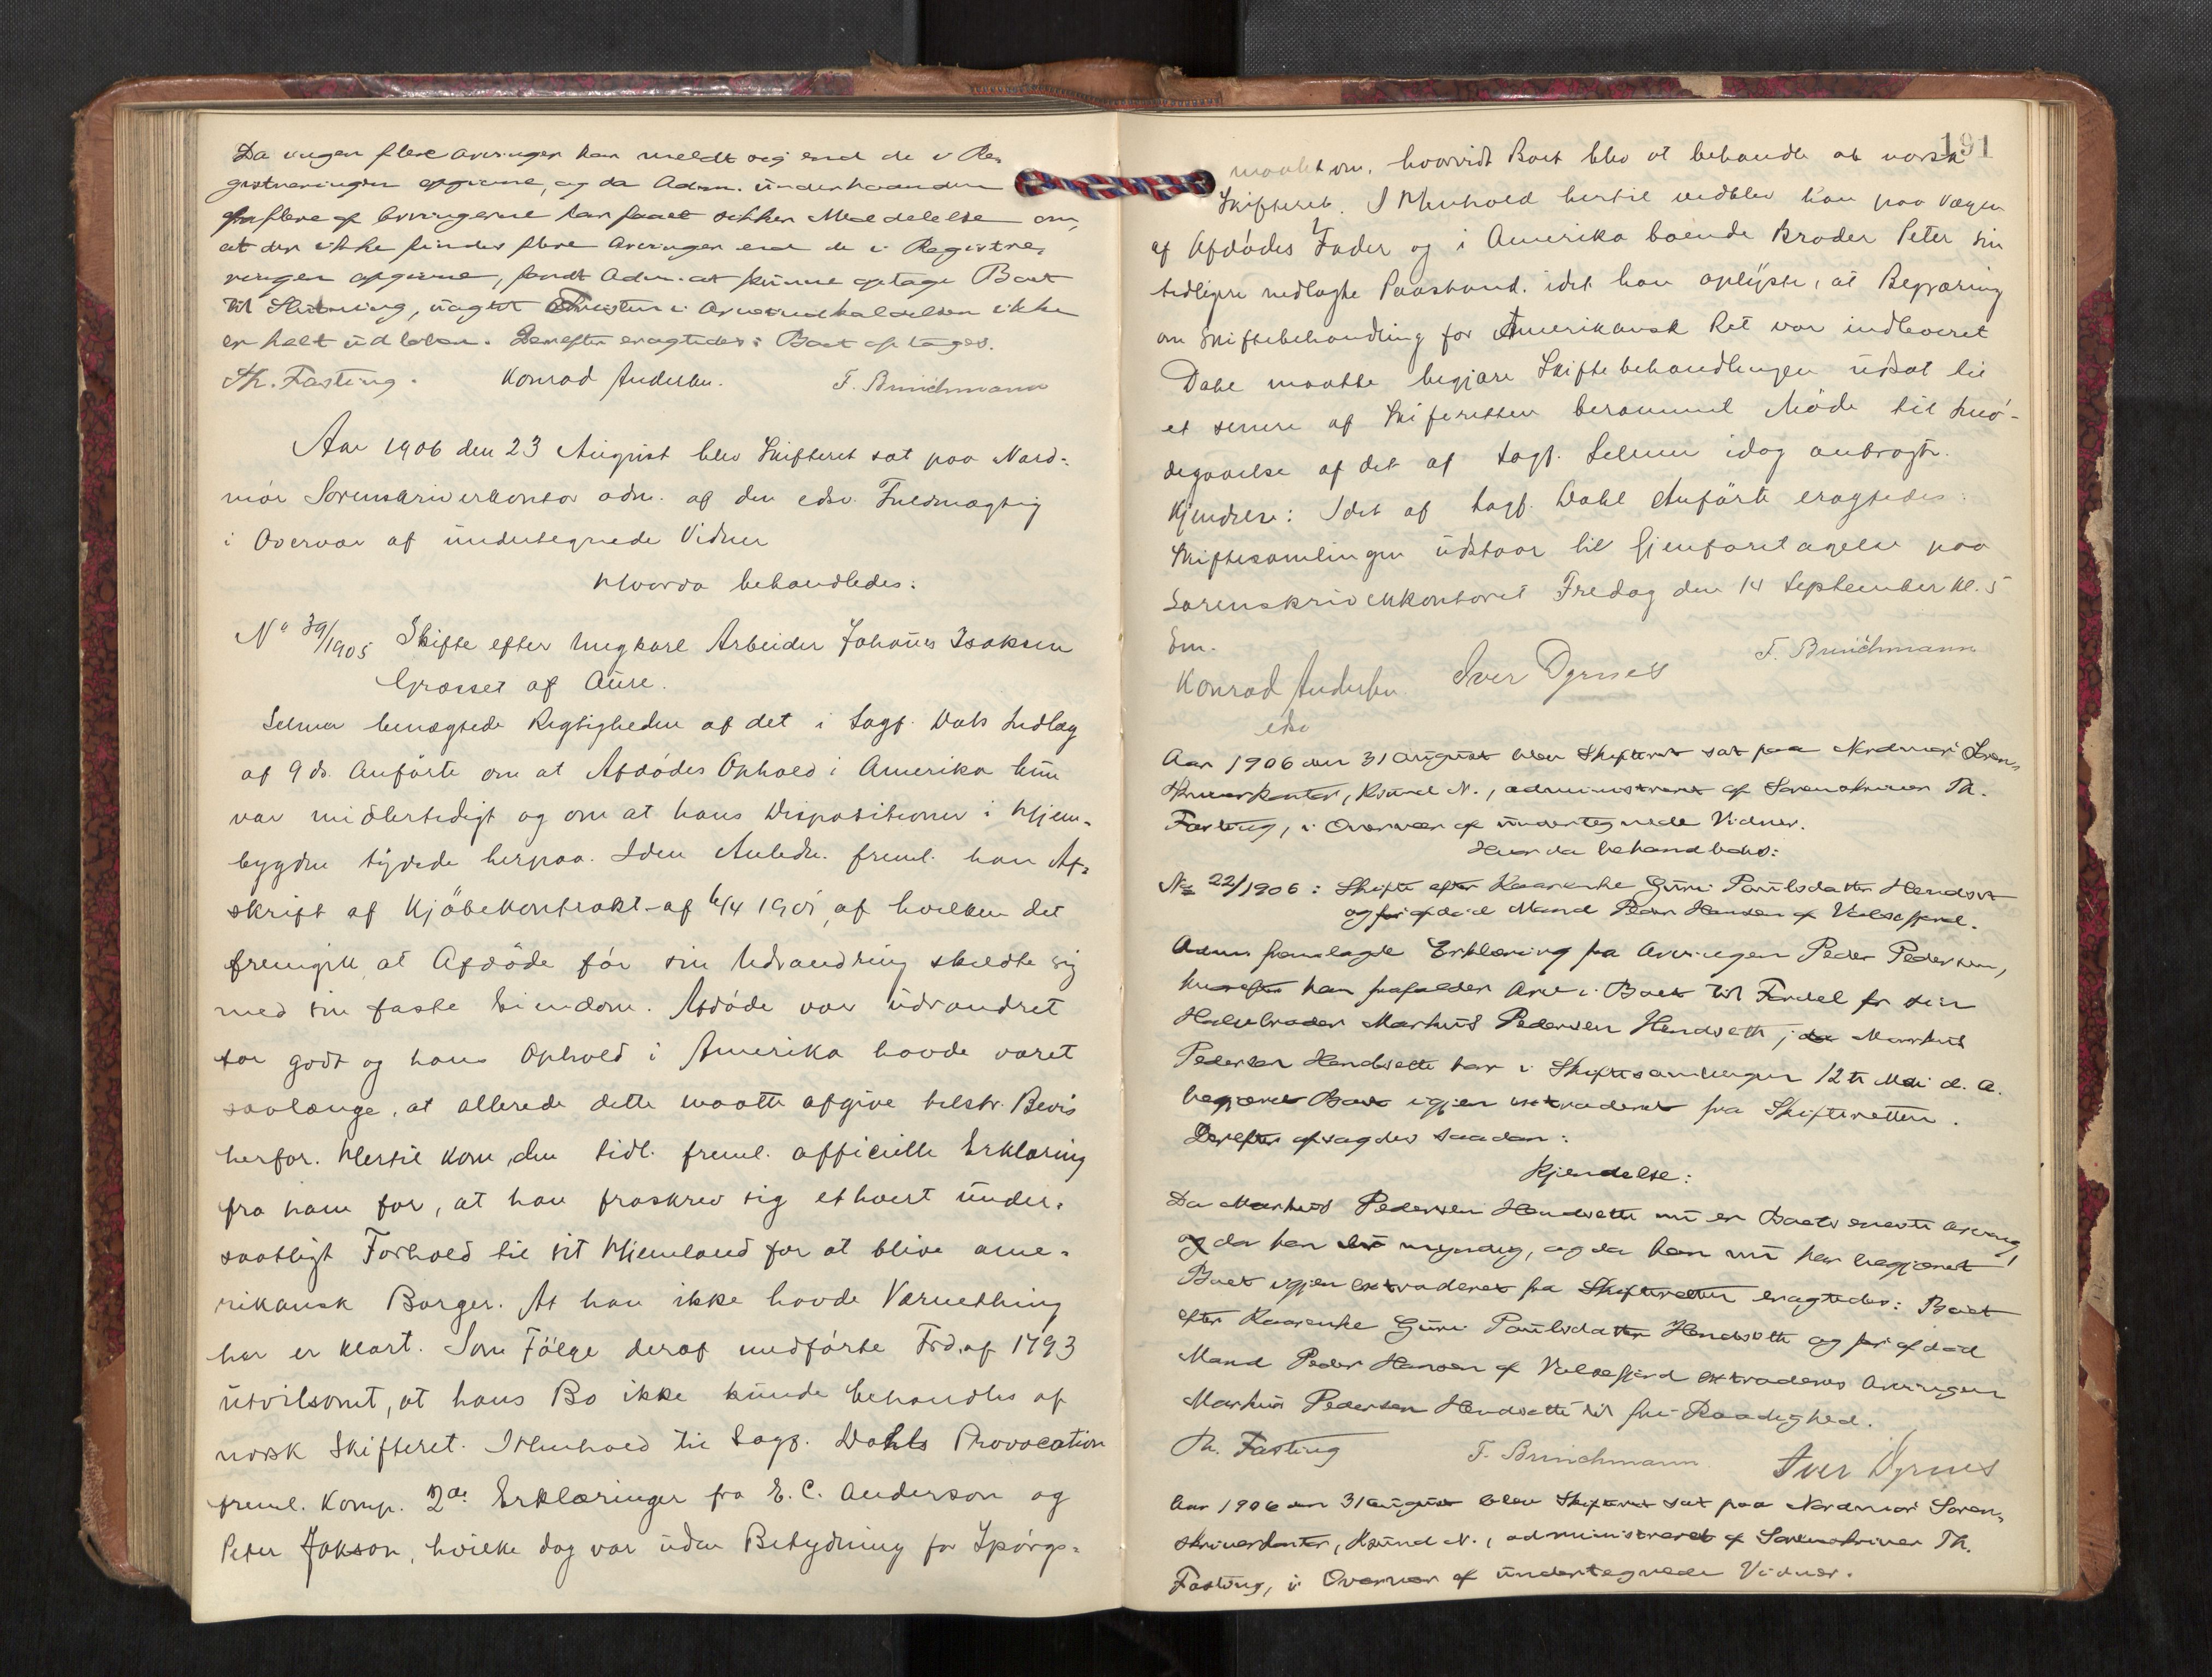 Da ingen flere arvinger har meldt sig end de i Re-
gistreringen opgivne, og da Adm. underhaanden
flere af arvingerne har faaet sikker Meddelelse om,
at der ikke findes flere Arvinger end de i Registre-
ringen opgivne, fandt Adm. at kunne optage Boet
til Slutning, uagtet Fristen i Arveindkaldelsen ikke
er helt udløben. Derefter eragtedes: Boet optages.
Th. Fasting. Konrad Andersen. T. Brüchmann
Aar 1906 den 23 August blev Skifteret sat paa Nord-
mør Sorenskriverkontor adm. af den edsv. Fuldmægtig
i Overvær af undertegnede Vidner
Hvorda behandledes:
No 39/1905 Skifte efter Ungkarl Arbeider Johannes Isaksen
Grosset af Aure.
Selmer benægtede Rigtigheden af det i Sagf. Dahls Indlæg
af 9 ds. Anførte om at Afdødes Ophold i Amerika kun
var midlertidigt og om at hans Dispositioner i Hjem-
bygden tydede herpaa. I den Anledn. freml. han Af-
skrift af Kjøbekontrakt af 6/4 1901, af hvilken det
fremgik at Afdøde før sin Udvandring skildte sig
med sin faste Eiendom. Afdøde var udvandret
for godt og hans Ophold i Amerika havde varet
saalænge, at allerede dette maatte afgive tilstr. Bevis
herfor. Hertil kom den tidl. freml. officielle Erklæring
fra ham for, at han fraskrev sig ethvert under-
saatligt Forhold til sit Hjemland for at blive ame-
rikansk Borger. At han ikke havde Værnething
her er klart. Som Følge deraf medførte Frd. af 1793
utvilsomt, at hans Bo ikke kunde behandles af
norsk Skifteret. I Henhold til Sagf. Dahls Provocation
freml. Komp. 2de Erklæringer fra E. C. Anderson og
Peter Jakson, hvilke dog var uden Betydning for Spørgs-
191
maalet om, hvorvidt Boet blev at behandle at norsk
Skifteret. I Henhold hertil vedblev han paa Vegne
af Afdødes Fader og i Amerika boende Broder Peter sin
tidligere nedlagte Paastand. idet han oplyste, at Begjæring
om Skiftebehandling for Amerikansk Ret var indleveret
Dahl maatte begjære Skiftebehandlingen udsat til
et senere af Skifteretten berammet Møde til Imø-
degaaelse af det af Sagf. Selmer idag anbragte.
Kjendelse: Idet af Sagf. Dahl Anførte eragtedes:
Skiftesamlingen udstaar til Gjenforetagelse paa
Sorenskriverkontoret Fredag den 14 September kl. 5
Em.
Konrad Andersen Iver Dyrnes T. Brüchmann
edsv
Aar 1906 den 31 august blev Skifteret sat paa Nordmør Soren-
skriverkontor, Ksund N., administreret af Sorenskriver Th.
Fasting, i Overvær af undertegnede Vidner.
Hvorda behandledes:
No 22/1906: Skifte efter Kaarenke Guru Paulsdatter Hendset
og før afdød Mand Peder Hansen af Valsøfjord.
Adm. fremlagde Erklæring fra Arvingen Peder Pedersen,
hvorefter han frafalder Arv i Boet til Fordel for sin
Halvbroder Markus Pedersen Hendsette; da Markus
Pedersen Hendsette har i Skiftesamlingen 12te Mai d. A.
begjæret Boet igjen extraderet fra Skifteretten.
Derefter afsagdes saadan:
Kjendelse:
Da Markus Pedersen Hendsette nu er Boets eneste arving,
og da han er myndig, og da han nu har begjæret
Boet igjen extraderet fra Skifteretten eragtedes: Boet
efter Kaarenke Guru Paulsdatter Hendsette og før afdød
Mand Peder Hansen af Valsøfjord extraderes Arvingen
Markus Pedersen Hendsette til fri Raadighed.
Th. Fasting T. Brüchmann Iver Dyrnes
Aar 1906 den 31 august blev Skifteret sat paa Nordmør Soren-
skriverkontor, Ksund N., administreret af Sorenskriver Th.
Fasting, i Overvær af undertegnede Vidner.